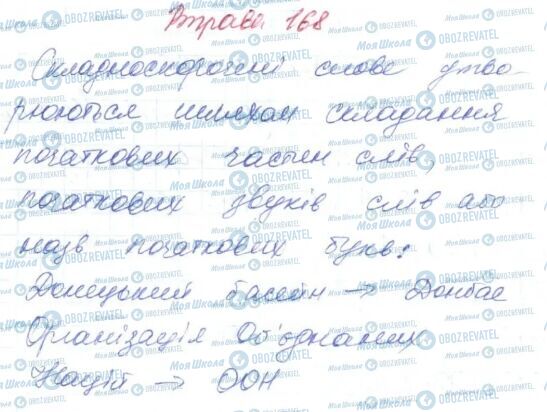 Вправа 168
Складноскорочені слова утво-
рюються шляхом складання
початкових частин слів,
початкових звуків слів або
назв початкових букв:
Донецький басейн → Донбас
Організація Об'єднаних
Націй → ООН